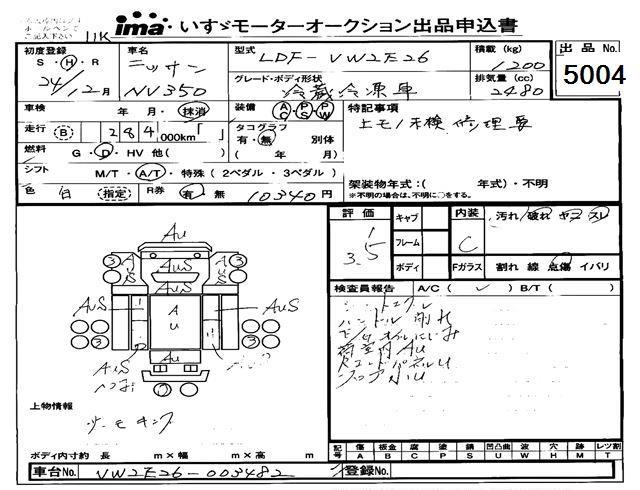 11K
ima いすゞモーターオークション出品申込書
初度登録 S・H・R 24/12月
車名 ニッサン NV350
型式 LDF-VW2E26
積載 (kg) 1200
グレード・ボディ形状 冷蔵冷凍車
排気量 (cc) 2480
出品No. 5004
車検 年・月・抹消
装備 AC PS PW
特記事項
上モノ未検 修理要
走行 B 284,000km「 」
タコグラフ 有・無 別体 ( 年/ 月)
燃料 G・D・HV 他( )
シフト M/T・A/T・特殊 (2ペダル・3ペダル)
架装物年式:( 年式)・不明
※不明の場合は、不明に○をする。
色 白 指定 R券 有・無 10340円
評価 3.5 1
キャブ
フレーム
ボディ
内装 C
汚れ・破れ ヤコ スレ
Fガラス 割れ 線 点傷 イバリ
検査員報告 A/C( ) B/T( )
ハンドル削れ
荷室内AU
AU
AUS
A AUS A
③ ③
AUS AUS
A U
AUS
AU
③ ③
②
上物情報
サーモキング
ボディ内寸約 長 m×幅 m×高 m
記号 傷 板金 腐 塗 錆 凹凸曲 波 穴 跡 レツ割
A B C P S U W H M T
車台No. VW2E26-003482
登録No.